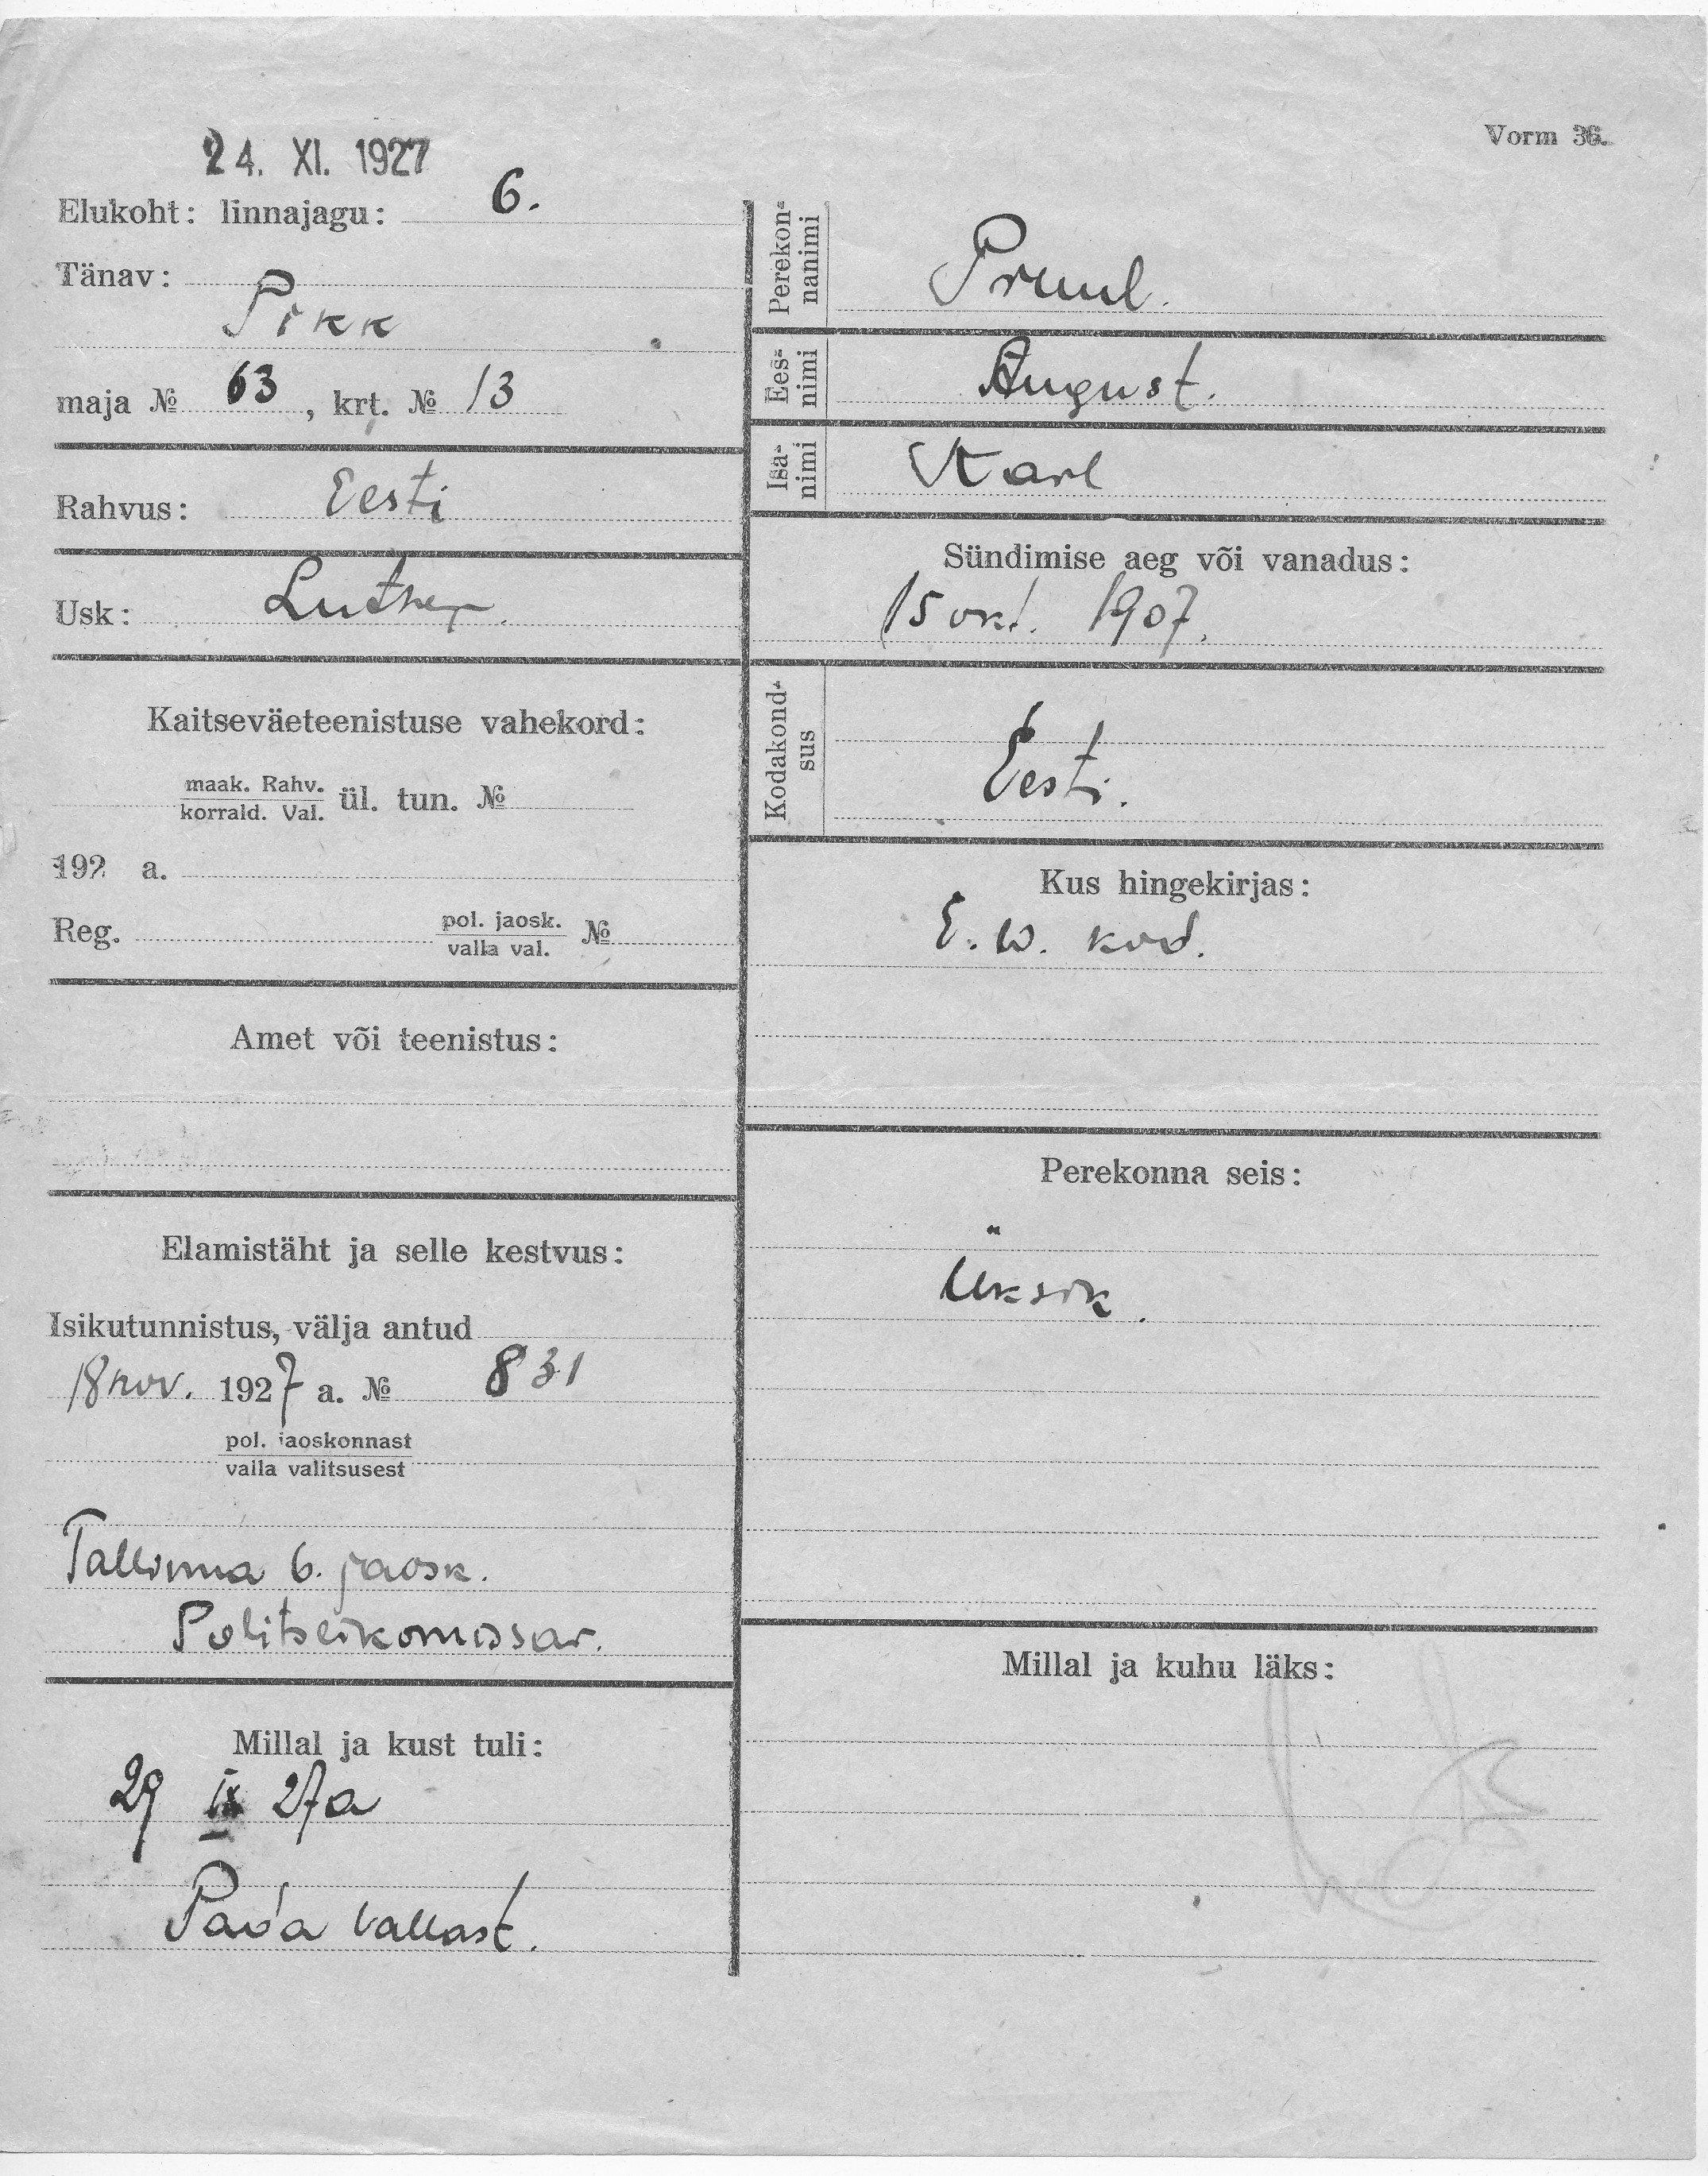 24. XI. 1927
Vorm 36.
Elukoht: linnajagu: 6.
Tänav:
Pikk
maja № 63, krt. № 13
Rahvus: Eesti
Usk: Luther.
Kaitseväeteenistuse vahekord:
maak. Rahv.
korrald. Val. ül. tun. №
192 a.
Reg. pol. jaosk. №
valla val.
Amet või teenistus:
Elamistäht ja selle kestvus:
Isikutunnistus, välja antud
18 nov. 1927 a. № 831
pol. jaoskonnast
valla valitsusest
Tallinna 6. jaosk.
Politseikomissar.
Millal ja kust tuli:
29 IX 27a
Pada vallast.
Perekon-
nanimi
Pruul.
Ees-
nimi
August.
Isa-
nimi
Karl
Sündimise aeg või vanadus:
15 okt. 1907.
Kodakond-
sus
Eesti.
Kus hingekirjas:
E. W. kod.
Perekonna seis:
Üksik.
Millal ja kuhu läks: